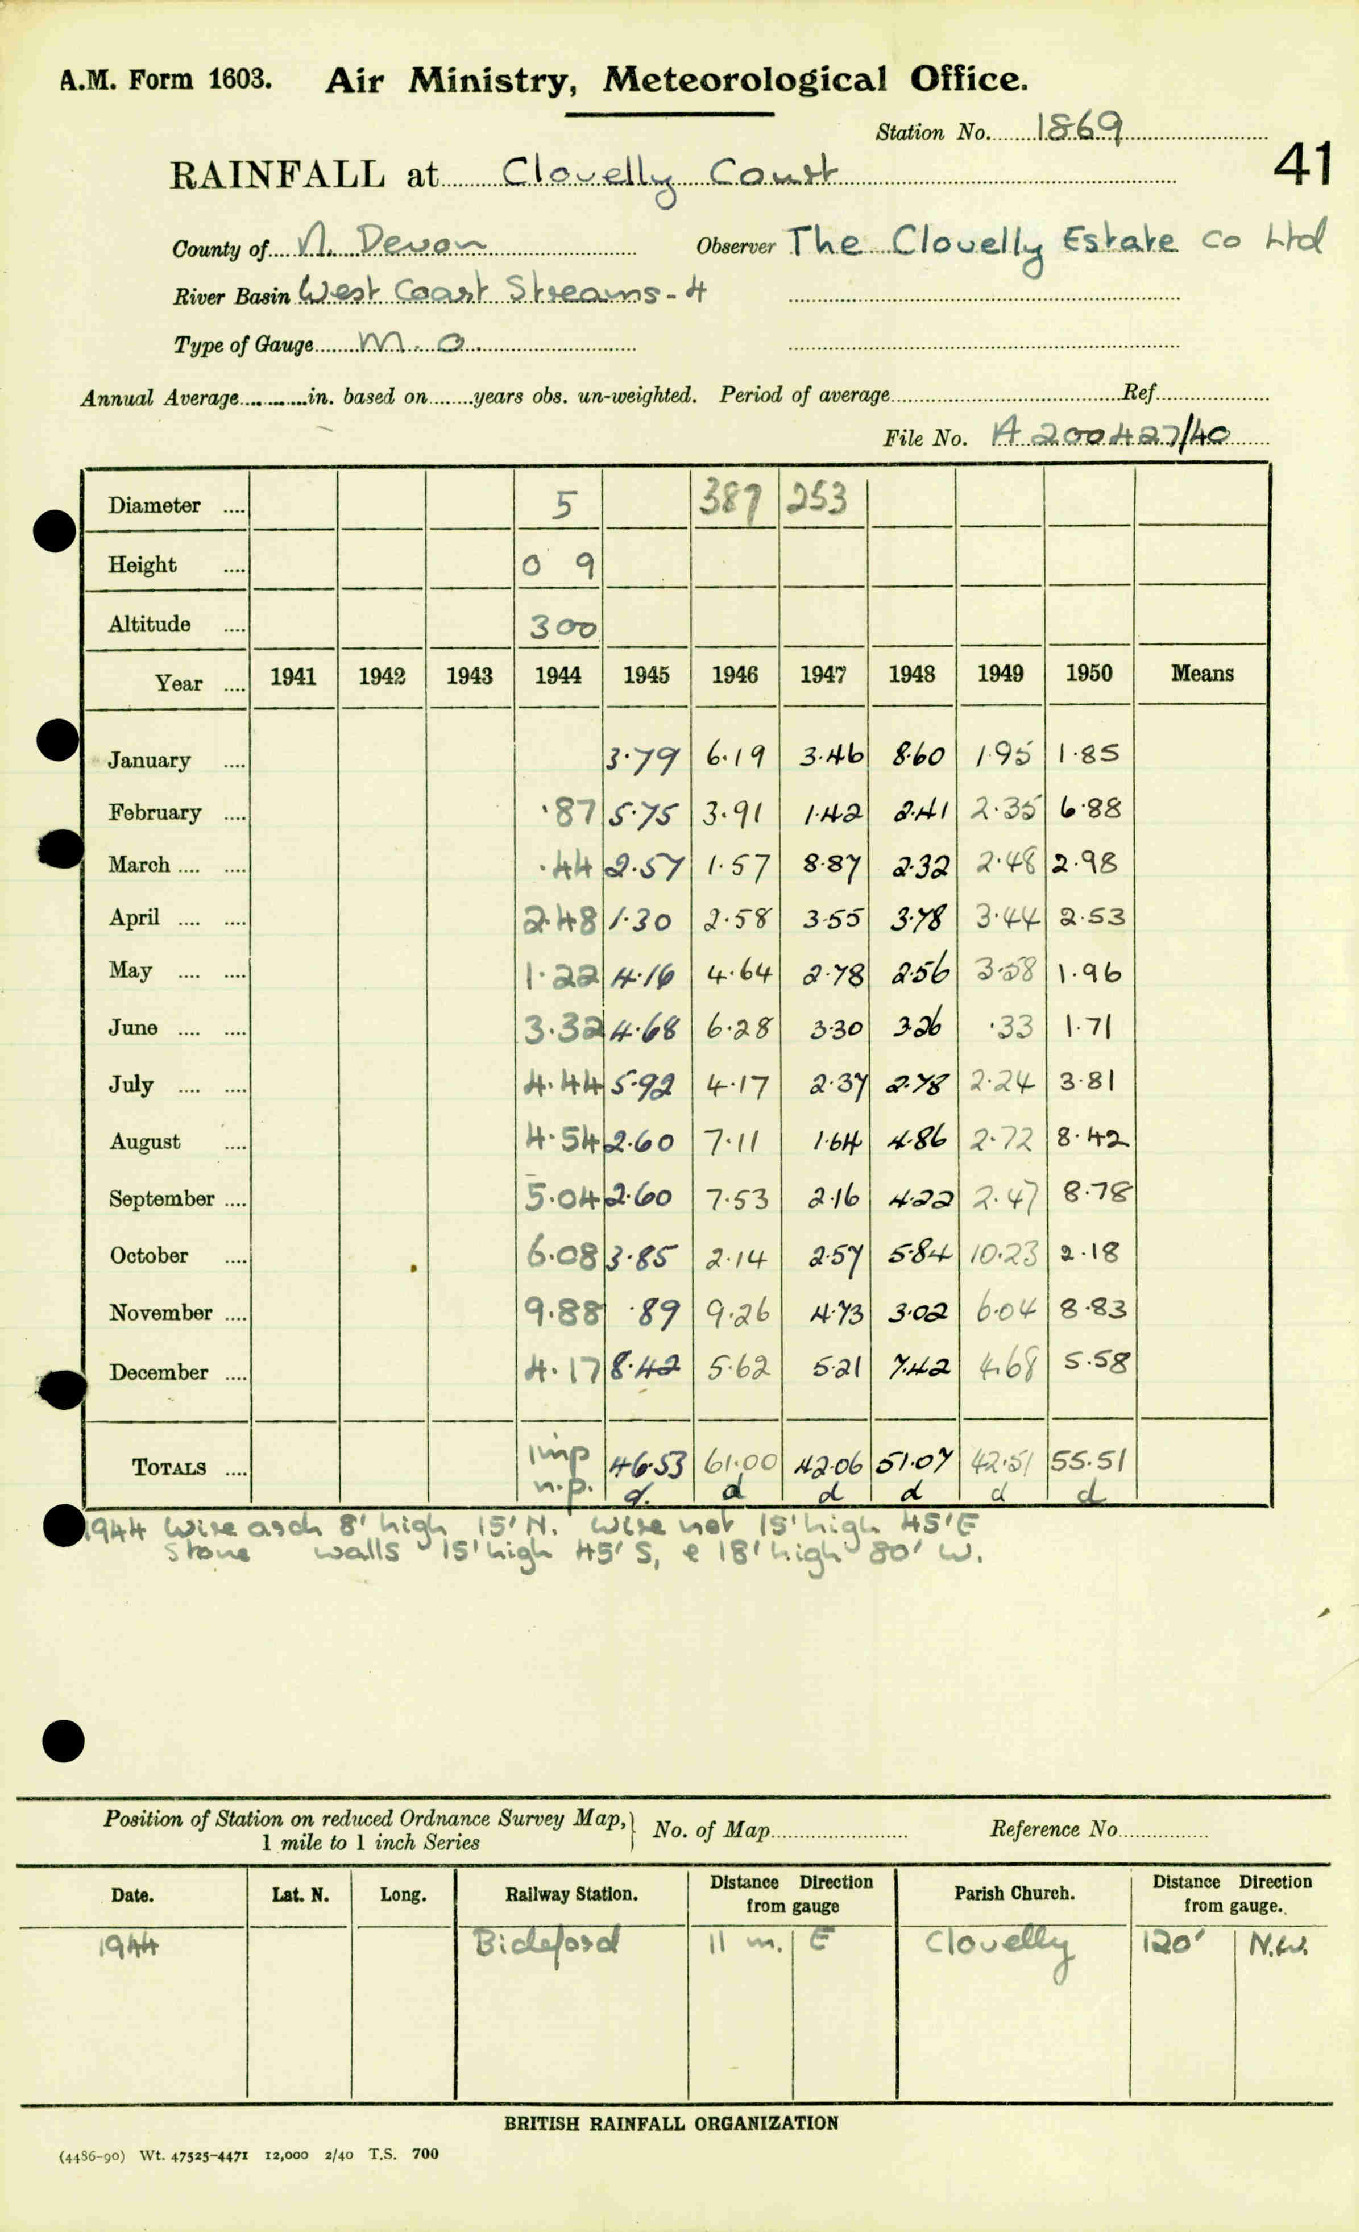 A.M. Form 1603. Air Ministry, Meteorological Office.
Station No. 1869
41
RAINFALL at Clovelly Court
County of N. Devon Observer The Clovelly Estate Co Ltd
River Basin West Coast Streams - 4
Type of Gauge M. O.
Annual Average in. based on years obs. un-weighted. Period of average Ref
File No. A 200427/40
Diameter 5 387 253
Height 0 9
Altitude 300
Year 1941 1942 1943 1944 1945 1946 1947 1948 1949 1950 Means
January 3·79 6·19 3·46 8·60 1·95 1·85
February ·87 5·75 3·91 1·42 2·41 2·35 6·88
March ·44 2·57 1·57 8·87 2·32 2·48 2·98
April 2·48 1·30 2·58 3·55 3·78 3·44 2·53
May 1·22 4·16 4·64 2·78 2·56 3·58 1·96
June 3·32 4·68 6·28 3·30 3·26 ·33 1·71
July 4·44 5·92 4·17 2·37 2·78 2·24 3·81
August 4·54 2·60 7·11 1·64 4·86 2·72 8·42
September 5·04 2·60 7·53 2·16 4·22 2·47 8·78
October 6·08 3·85 2·14 2·57 5·84 10·23 2·18
November 9·88 ·89 9·26 4·73 3·02 6·04 8·83
December 4·17 8·42 5·62 5·21 7·42 4·68 5·58
TOTALS imp 46·53 61·00 42·06 51·07 42·51 55·51
n.p. d. d d d d d
1944 Wire arch 8' high 15' N. Wire net 15' high 45' E
Stone walls 15' high 45' S, & 18' high 80' W.
Position of Station on reduced Ordnance Survey Map, No. of Map Reference No
1 mile to 1 inch Series
Date. Lat. N. Long. Railway Station. Distance Direction from gauge Parish Church. Distance Direction from gauge.
1944 Bideford 11 m. E Clovelly 120' N.W.
BRITISH RAINFALL ORGANIZATION
(4486-90) Wt. 47525-4471 12,000 2/40 T.S. 700